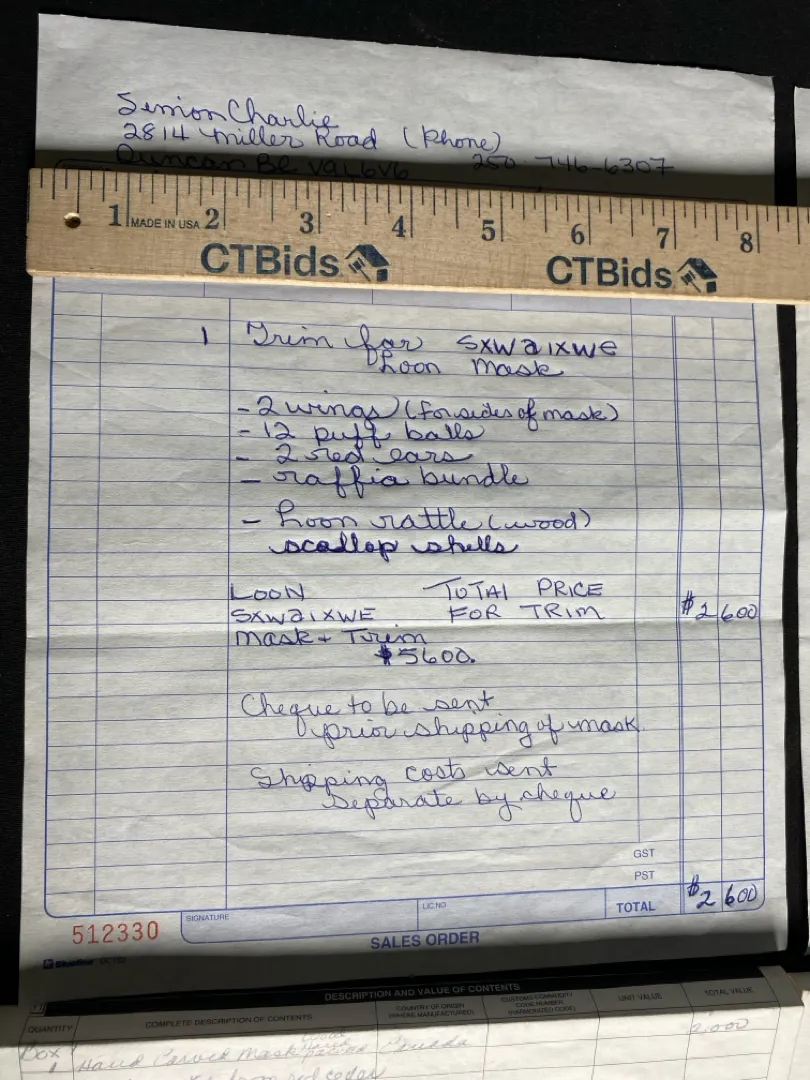 Simon Charlie
2814 Miller Road (Phone)
Duncan BC V9L 6V6 250-746-6307
1 MADE IN USA 2 3 4 5 6 7 8
CTBids CTBids
1 Trim for SXWAIXWE
Loon Mask
- 2 wings (for sides of mask)
- 12 puff balls
- 2 red ears
- raffia bundle
- Loon rattle (wood)
scallop shells
LOON TOTAL PRICE
SXWAIXWE FOR TRIM $2 600
Mask + Trim
$5600.
Cheque to be sent
prior shipping of mask
Shipping costs sent
separate by cheque
GST
PST
TOTAL $2 600
SIGNATURE LIC NO
512330 SALES ORDER
DESCRIPTION AND VALUE OF CONTENTS
QUANTITY COMPLETE DESCRIPTION OF CONTENTS COUNTRY OF ORIGIN (WHERE MANUFACTURED) CUSTOMS COMMODITY CODE NUMBER (HARMONIZED CODE) UNIT VALUE TOTAL VALUE
Box 1 Hand Carved Mask Canada 2,000
from red cedar